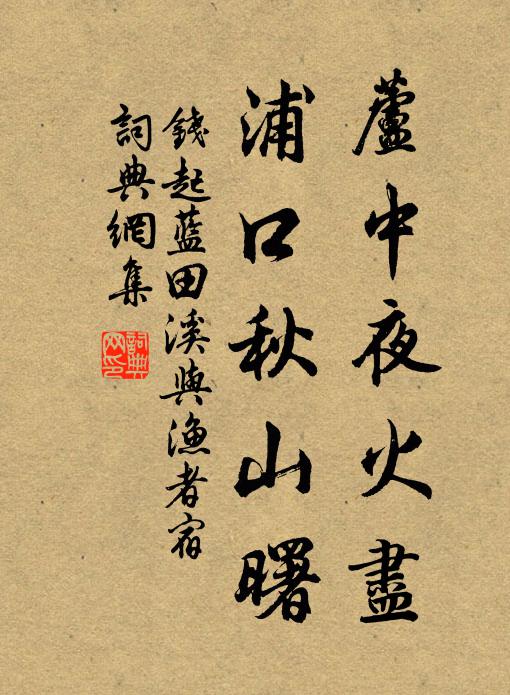 蘆中夜火盡
浦口秋山曙
錢起藍田溪與漁者宿
詞典網集
詞典網印